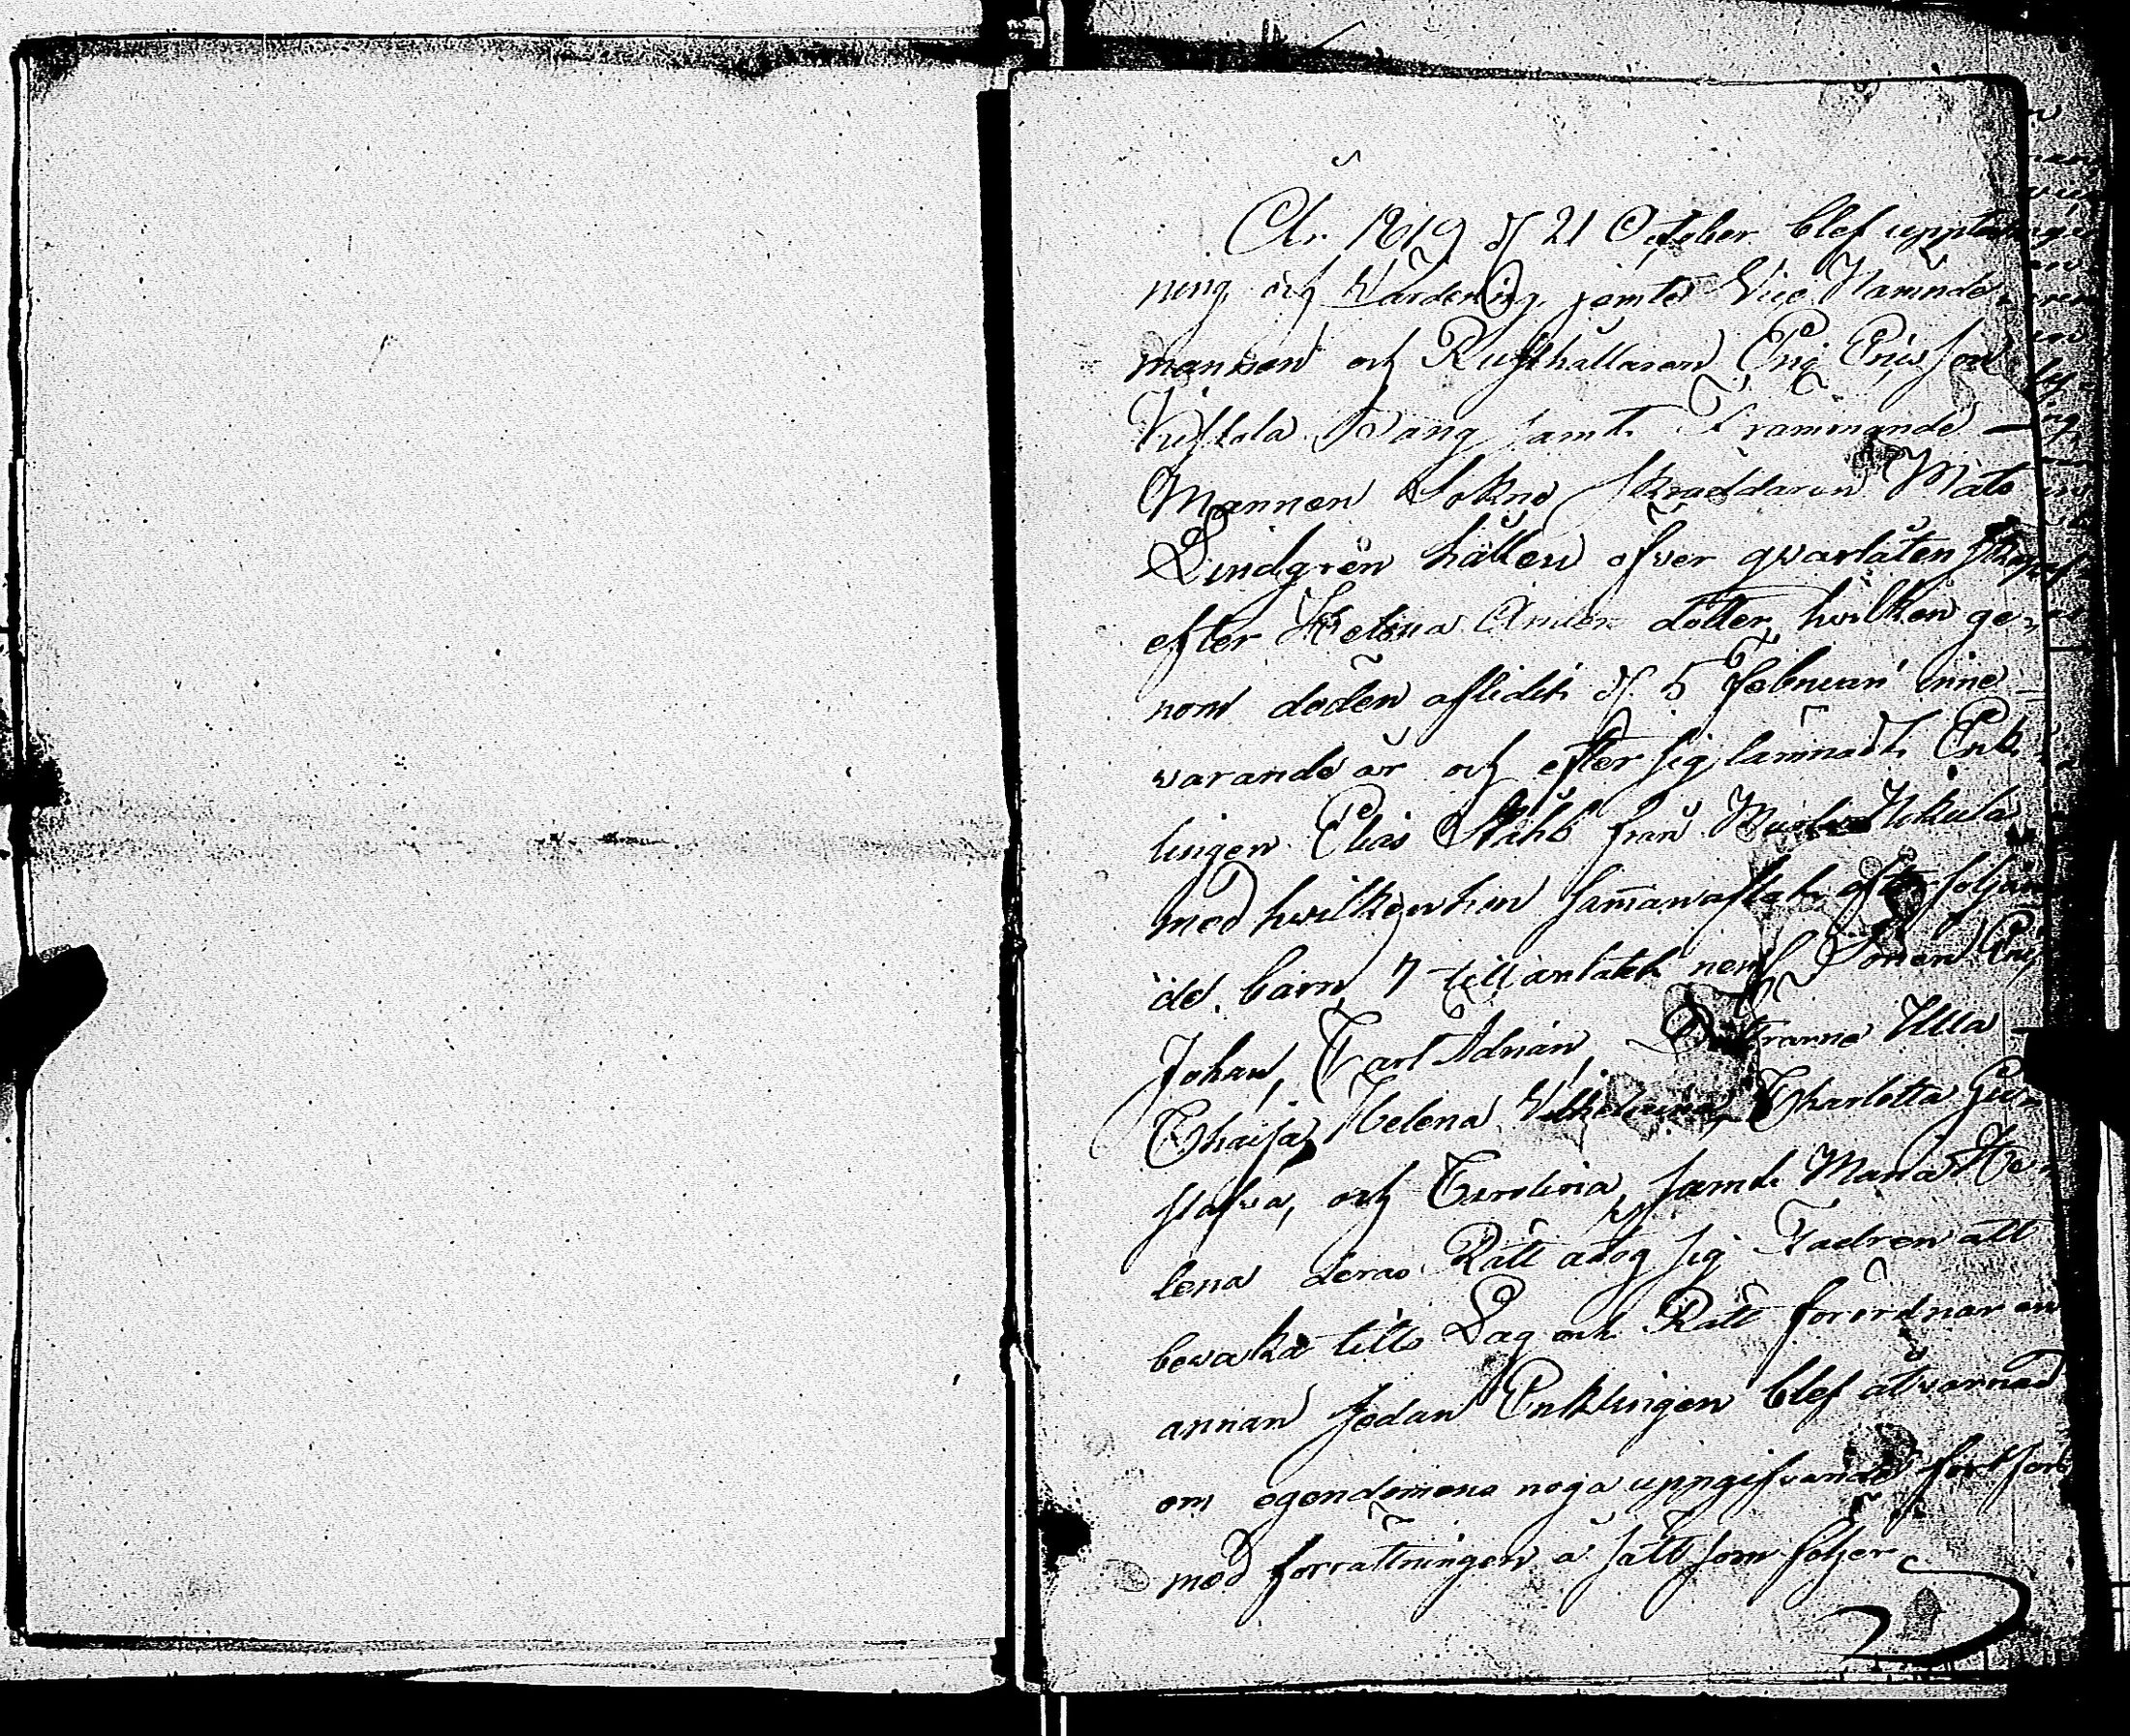 År 1819 d 21 October blef uppteck
ning och Wärdering, jämte Vice Nämnde
mannen och Rusthållaren Eric Ericsson
samt Främmande
Mannen Sokne Skräddaren Mats
Lindgren hållen öfver qvarlåtenskapen
efter Helena Anders dotter, hvilken ge-
nom döden aflidit d 5 Februari inne
warande år och efter sig lämnadt Enk
lingen Elias Ståhl från
med hvilken hon sammanaflat efterföljan
de barn 7 till antalet neml Sonen Eric
Johan, Carl Adrian, Döttrarne Ulla
Chaisa, Helena Wilhelmina, Charlotta Gu
stafva, och Carolina samt Maria He
lena deras Rätt åtog sig Fadren att
bevaka tills Lag och Rätt förordnar en
annan sedan Enklingen blef åtvarnad
om egendomens noga uppgifvande fortfor
med förrättningen å sätt som följer